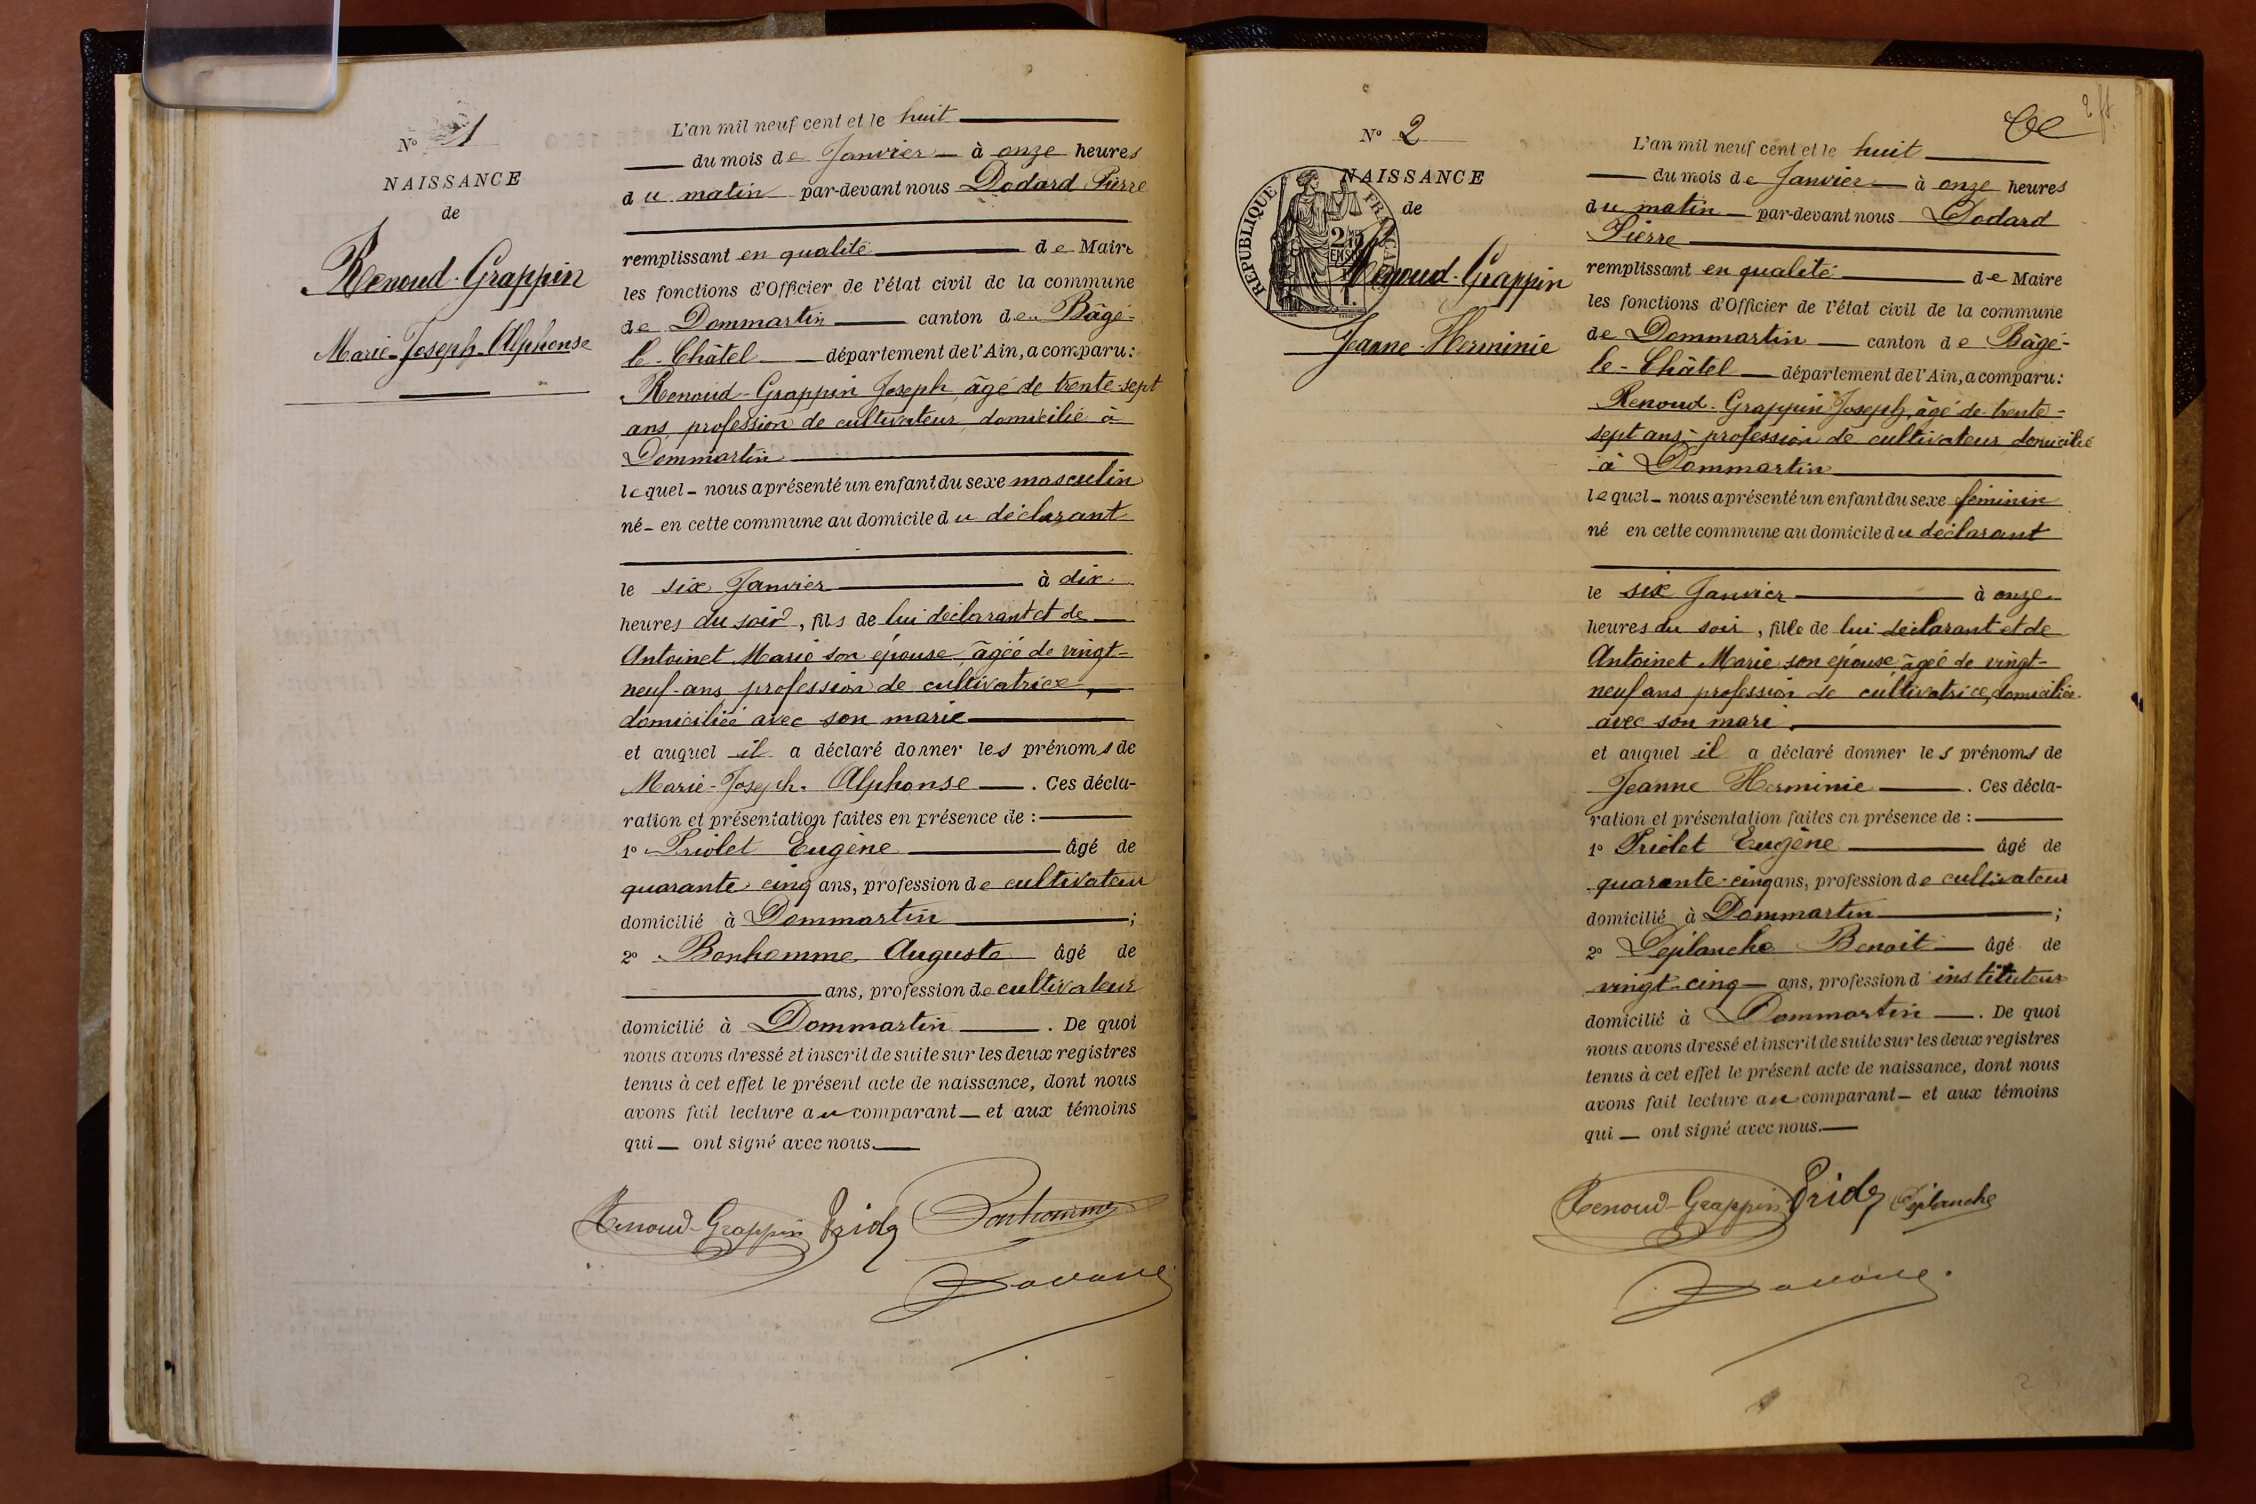 N° 1
NAISSANCE
de
Renoud-Grappin
Marie-Joseph-Alphonse
L'an mil neuf cent et le huit
du mois de Janvier à onze heures
du matin par-devant nous Dodard Pierre
remplissant en qualité de Maire
les fonctions d'Officier de l'état civil de la commune
de Dommartin canton de Bâgé-
le-Châtel département de l'Ain, a comparu:
Renoud-Grappin Joseph, âgé de trente-sept
ans, profession de cultivateur, domicilié à
Dommartin
lequel nous a présenté un enfant du sexe masculin
né en cette commune au domicile du déclarant
le six Janvier à dix
heures du soir, fils de lui déclarant et de
Antoinet Marie son épouse, âgée de vingt-
neuf-ans profession de cultivatrice,
domiciliée avec son marie
et auquel il a déclaré donner les prénoms de
Marie-Joseph-Alphonse. Ces décla-
ration et présentation faites en présence de :
1° Priolet Eugène âgé de
quarante-cinq ans, profession de cultivateur
domicilié à Dommartin ;
2° Bonhomme Auguste âgé de
ans, profession de cultivateur
domicilié à Dommartin. De quoi
nous avons dressé et inscrit de suite sur les deux registres
tenus à cet effet le présent acte de naissance, dont nous
avons fait lecture au comparant et aux témoins
qui ont signé avec nous.
Renoud-Grappin Bonhomme
N° 2
NAISSANCE
de
REPUBLIQUE FRANÇAISE
Renoud-Grappin
Jeanne-Herminie
L'an mil neuf cent et le huit
du mois de Janvier à onze heures
du matin par-devant nous Dodard
Pierre
remplissant en qualité de Maire
les fonctions d'Officier de l'état civil de la commune
de Dommartin canton de Bâgé-
le-Châtel département de l'Ain, a comparu:
Renoud-Grappin Joseph, âgé de trente-
sept ans, profession de cultivateur domicilié
à Dommartin
lequel nous a présenté un enfant du sexe féminin
né en cette commune au domicile du déclarant
le six Janvier à onze
heures du soir, fille de lui déclarant et de
Antoinet Marie son épouse, âgée de vingt-
neuf ans profession de cultivatrice, domiciliée
avec son mari
et auquel il a déclaré donner les prénoms de
Jeanne Herminie. Ces décla-
ration et présentation faites en présence de :
1° Priolet Eugène âgé de
quarante-cinq ans, profession de cultivateur
domicilié à Dommartin ;
2° Deplanche Benoit âgé de
vingt-cinq ans, profession d'instituteur
domicilié à Dommartin. De quoi
nous avons dressé et inscrit de suite sur les deux registres
tenus à cet effet le présent acte de naissance, dont nous
avons fait lecture au comparant et aux témoins
qui ont signé avec nous.
Renoud-Grappin Deplanche